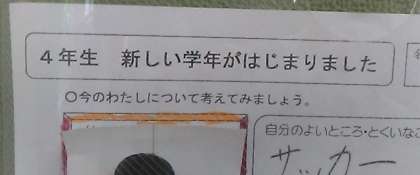 4年生 新しい学年がはじまりました
○今のわたしについて考えてみましょう。
自分のよいところ・とくいなこ
サッカー